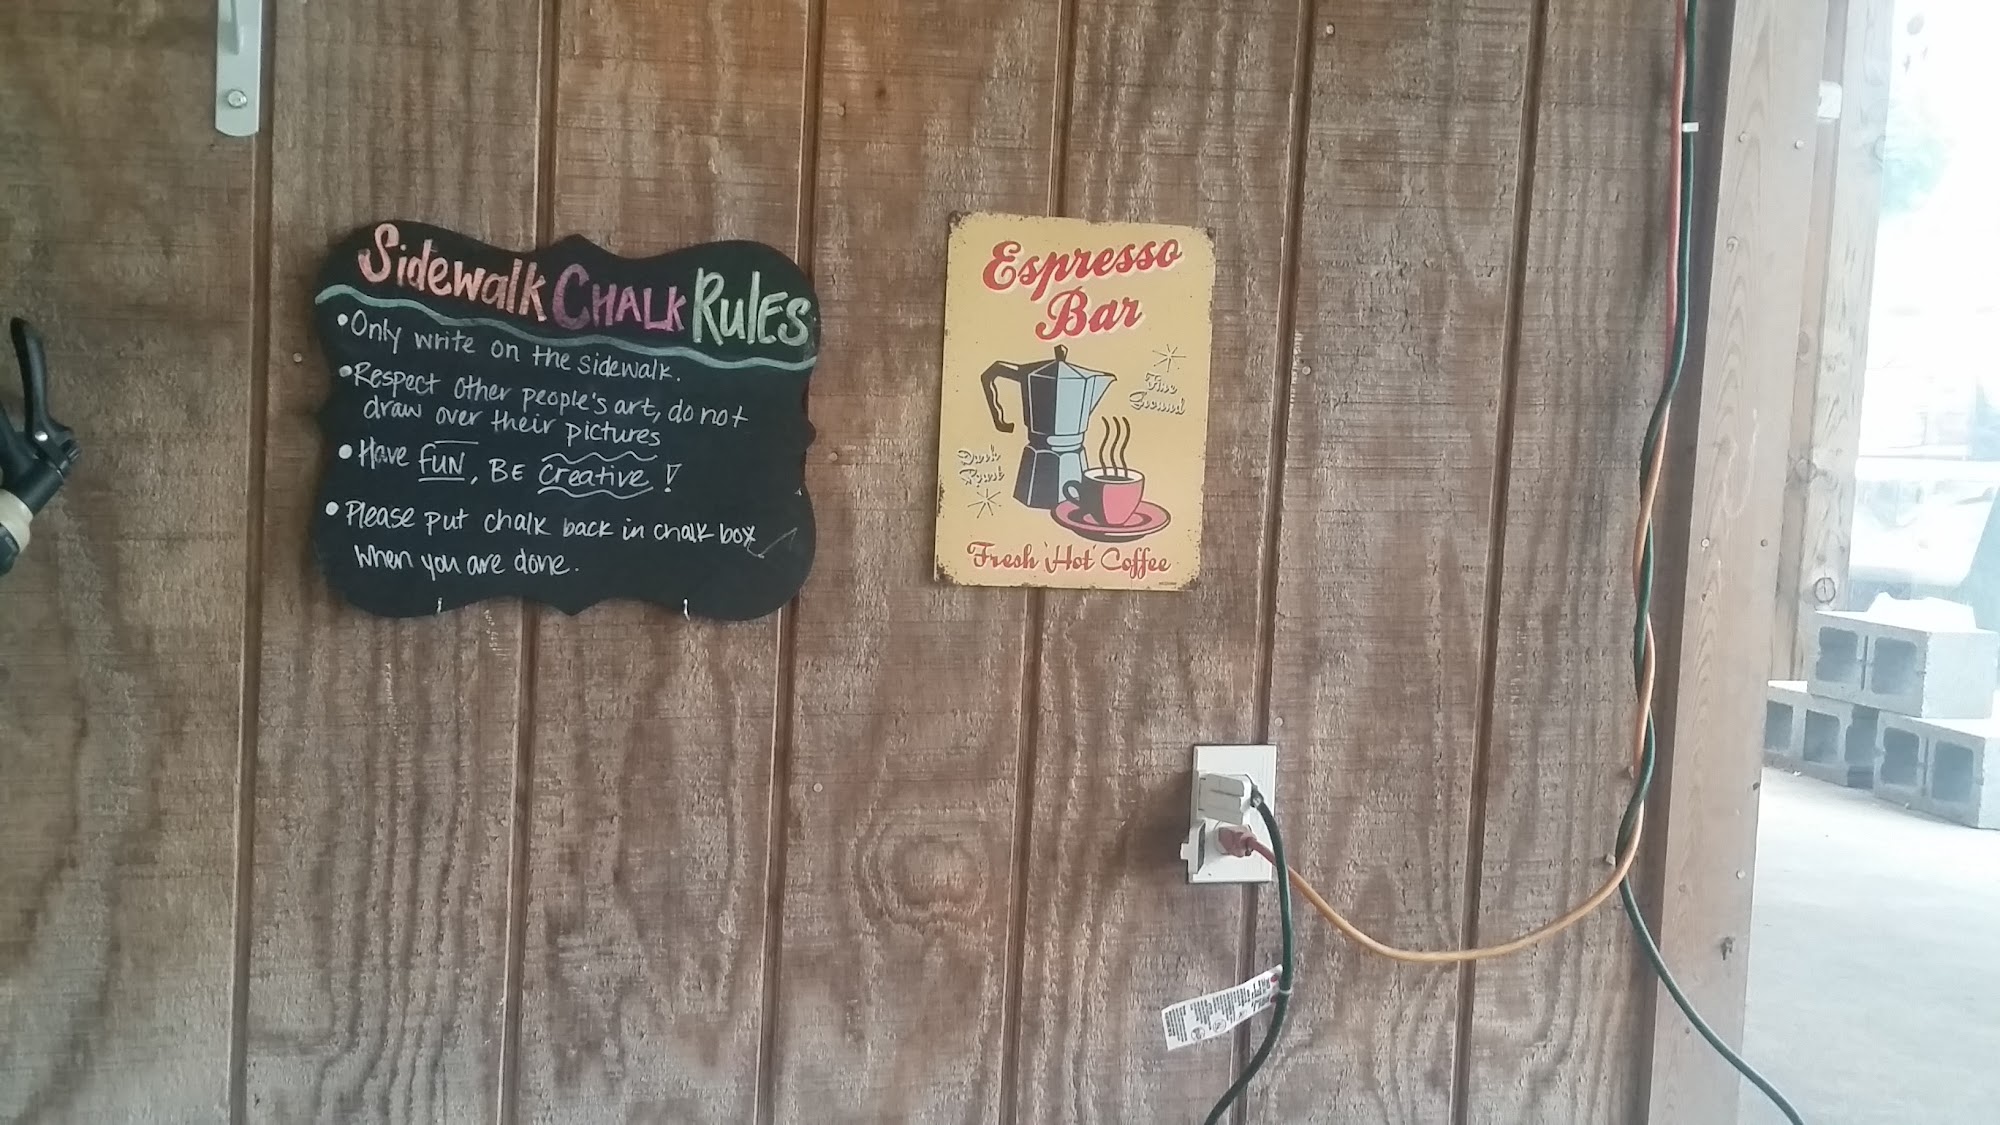 Sidewalk CHALK RULES
• Only write on the sidewalk.
• Respect other people's art, do not
draw over their pictures
• Have FUN, BE Creative!
• Please put chalk back in chalk box
when you are done.
Espresso
Bar
Fine
Ground
Dark
Roast
Fresh 'Hot' Coffee